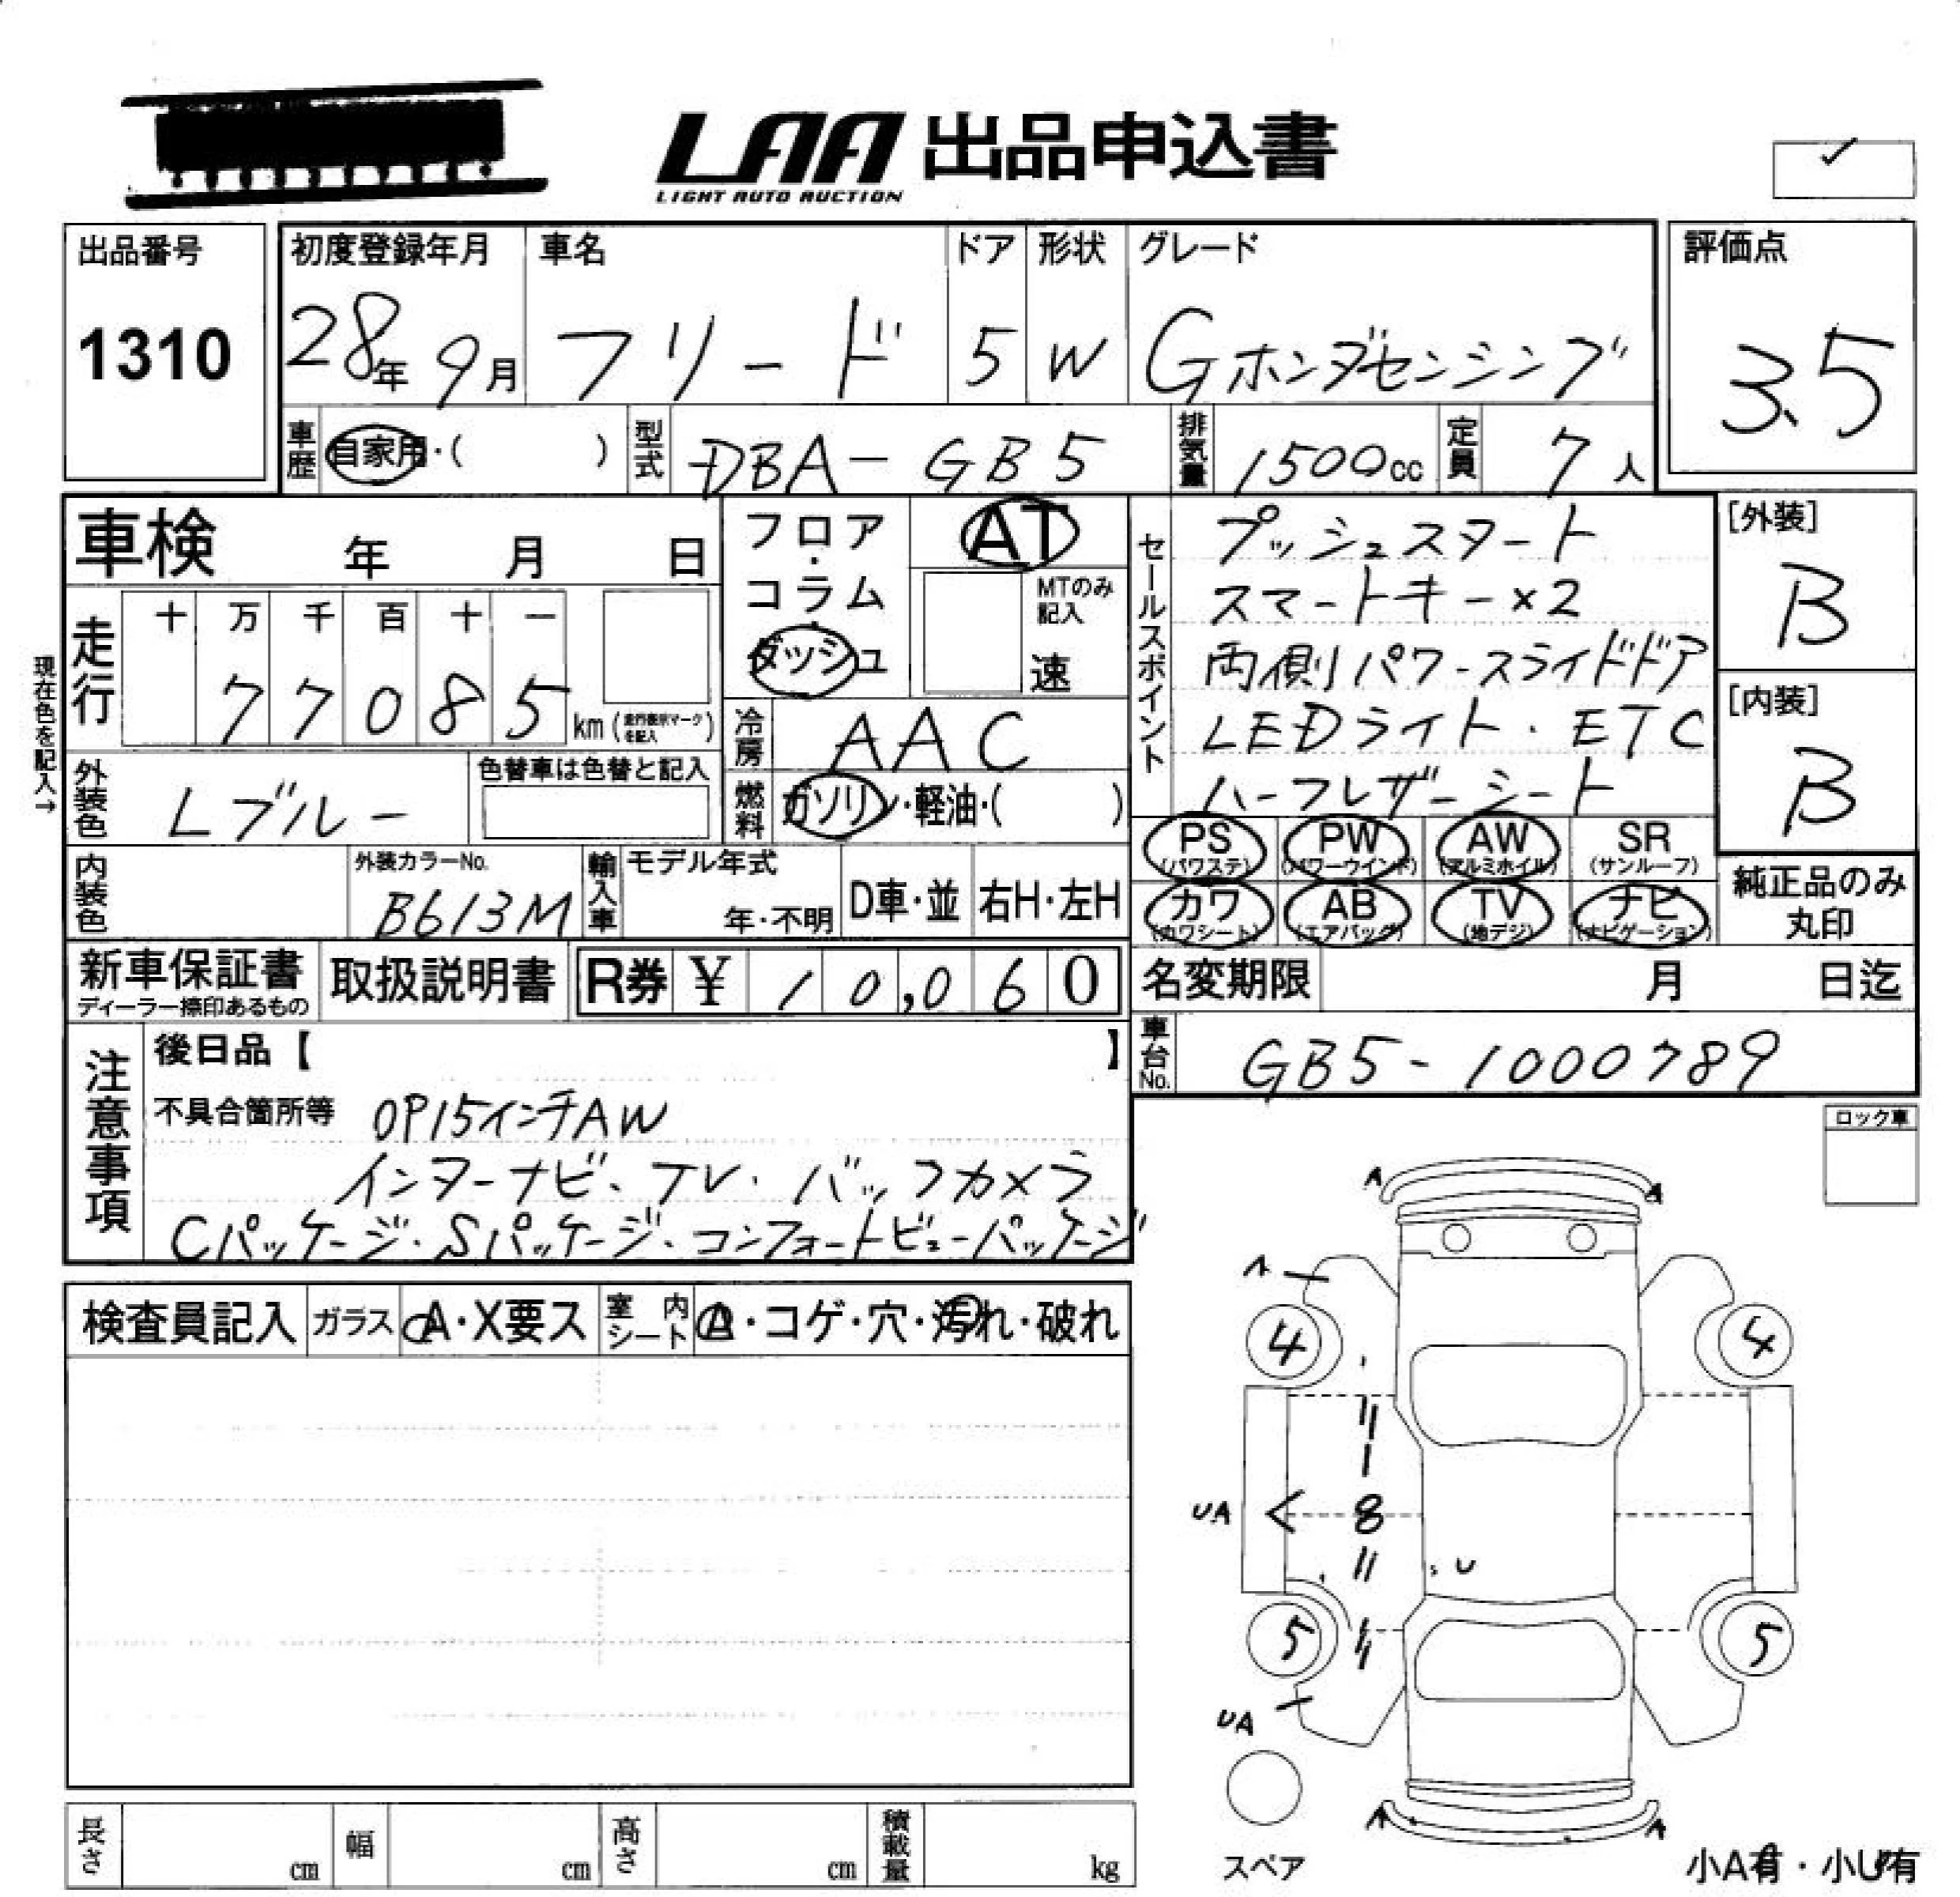 LAA 出品申込書
LIGHT AUTO AUCTION
出品番号
1310
初度登録年月
28年 9月
車名
フリード
ドア
5
形状
W
グレード
Gホンダセンシング
評価点
3.5
車歴
自家用・( )
型式
DBA-GB5
排気量
1500cc
定員
7人
車検 年 月 日
フロア・コラム・ダッシュ
AT
MTのみ記入
速
セールスポイント
プッシュスタート
スマートキー×2
両側パワースライドドア
LEDライト・ETC
ハーフレザーシート
[外装]
B
[内装]
B
現在色を記入→
走行
十 万 千 百 十 一
7 7 0 8 5 km (走行表示マークを記入)
冷房
AAC
燃料
ガソリン・軽油・( )
外装色
Lブルー
色替車は色替と記入
内装色
外装カラーNo.
B613M
輸入車
モデル年式
年・不明
D車・並
右H・左H
PS
(パワステ)
PW
(パワーウインド)
AW
(アルミホイル)
SR
(サンルーフ)
カワ
(カワシート)
AB
(エアバッグ)
TV
(地デジ)
ナビ
(ナビゲーション)
純正品のみ
丸印
新車保証書
ディーラー捺印あるもの
取扱説明書
R券 ¥ 10,060
名変期限 月 日迄
車台No.
GB5-1000789
注意事項
後日品【 】
不具合箇所等 OP15インチAW
インターナビ・TV・バックカメラ
Cパッケージ・Sパッケージ・コンフォートビューパッケージ
ロック車
検査員記入
ガラス
A・X要ス
室内シート
A・コゲ・穴・汚れ・破れ
A A
A
4 4
UA 8
U
5 5
UA
スペア
A A
小A有・小U有
長さ cm
幅 cm
高さ cm
積載量 kg